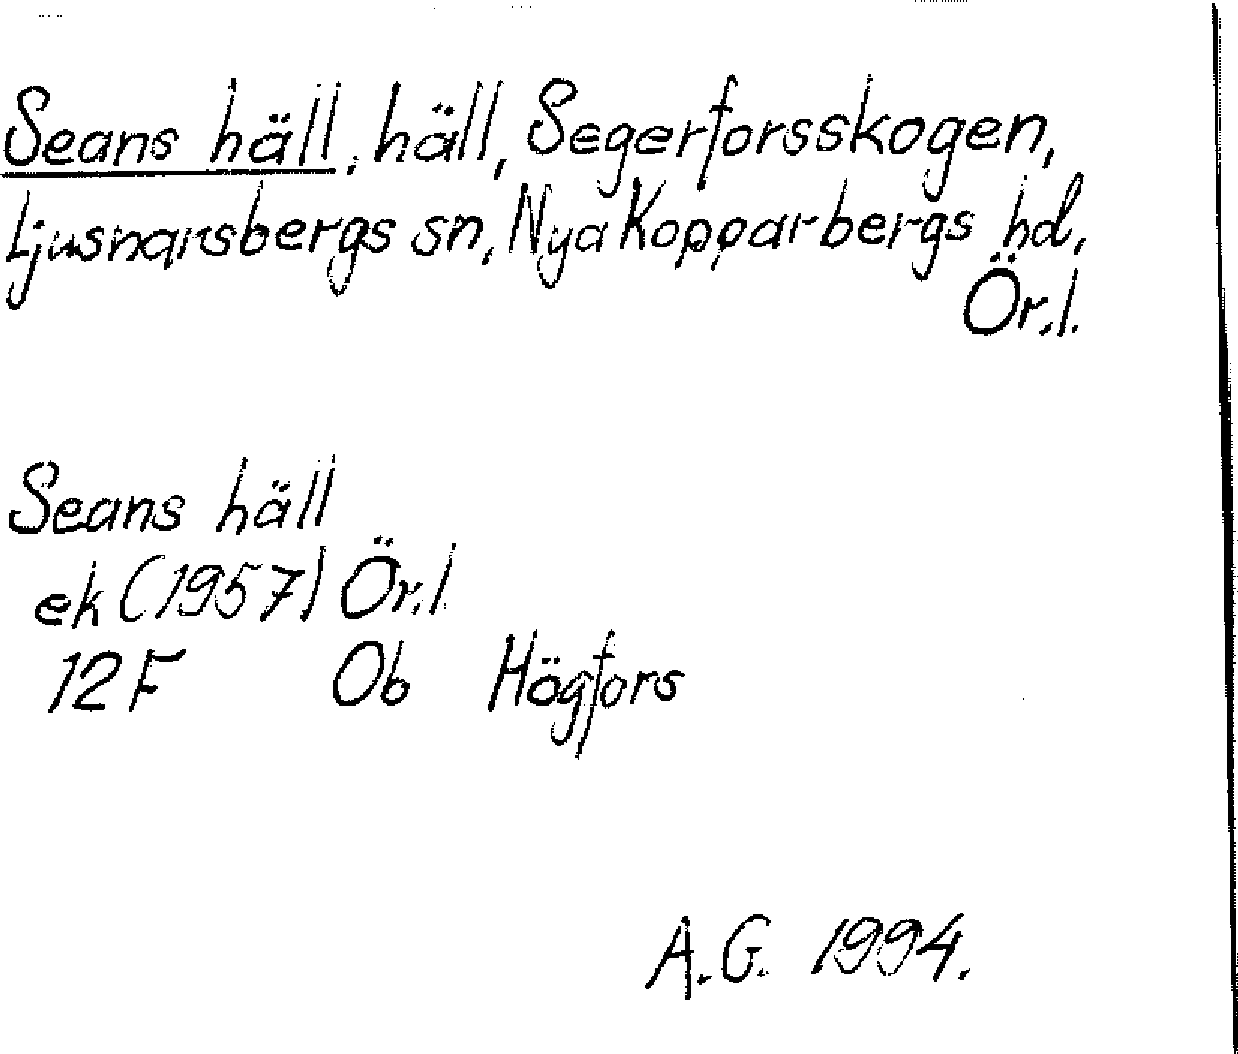 Seans häll, häll, Segerforsskogen,
Ljusnarsbergs sn, Nya Kopparbergs hd,
Ör.l.
Seans häll
ek (1957) Ör.l.
12F Ob Högfors
A.G. 1994.